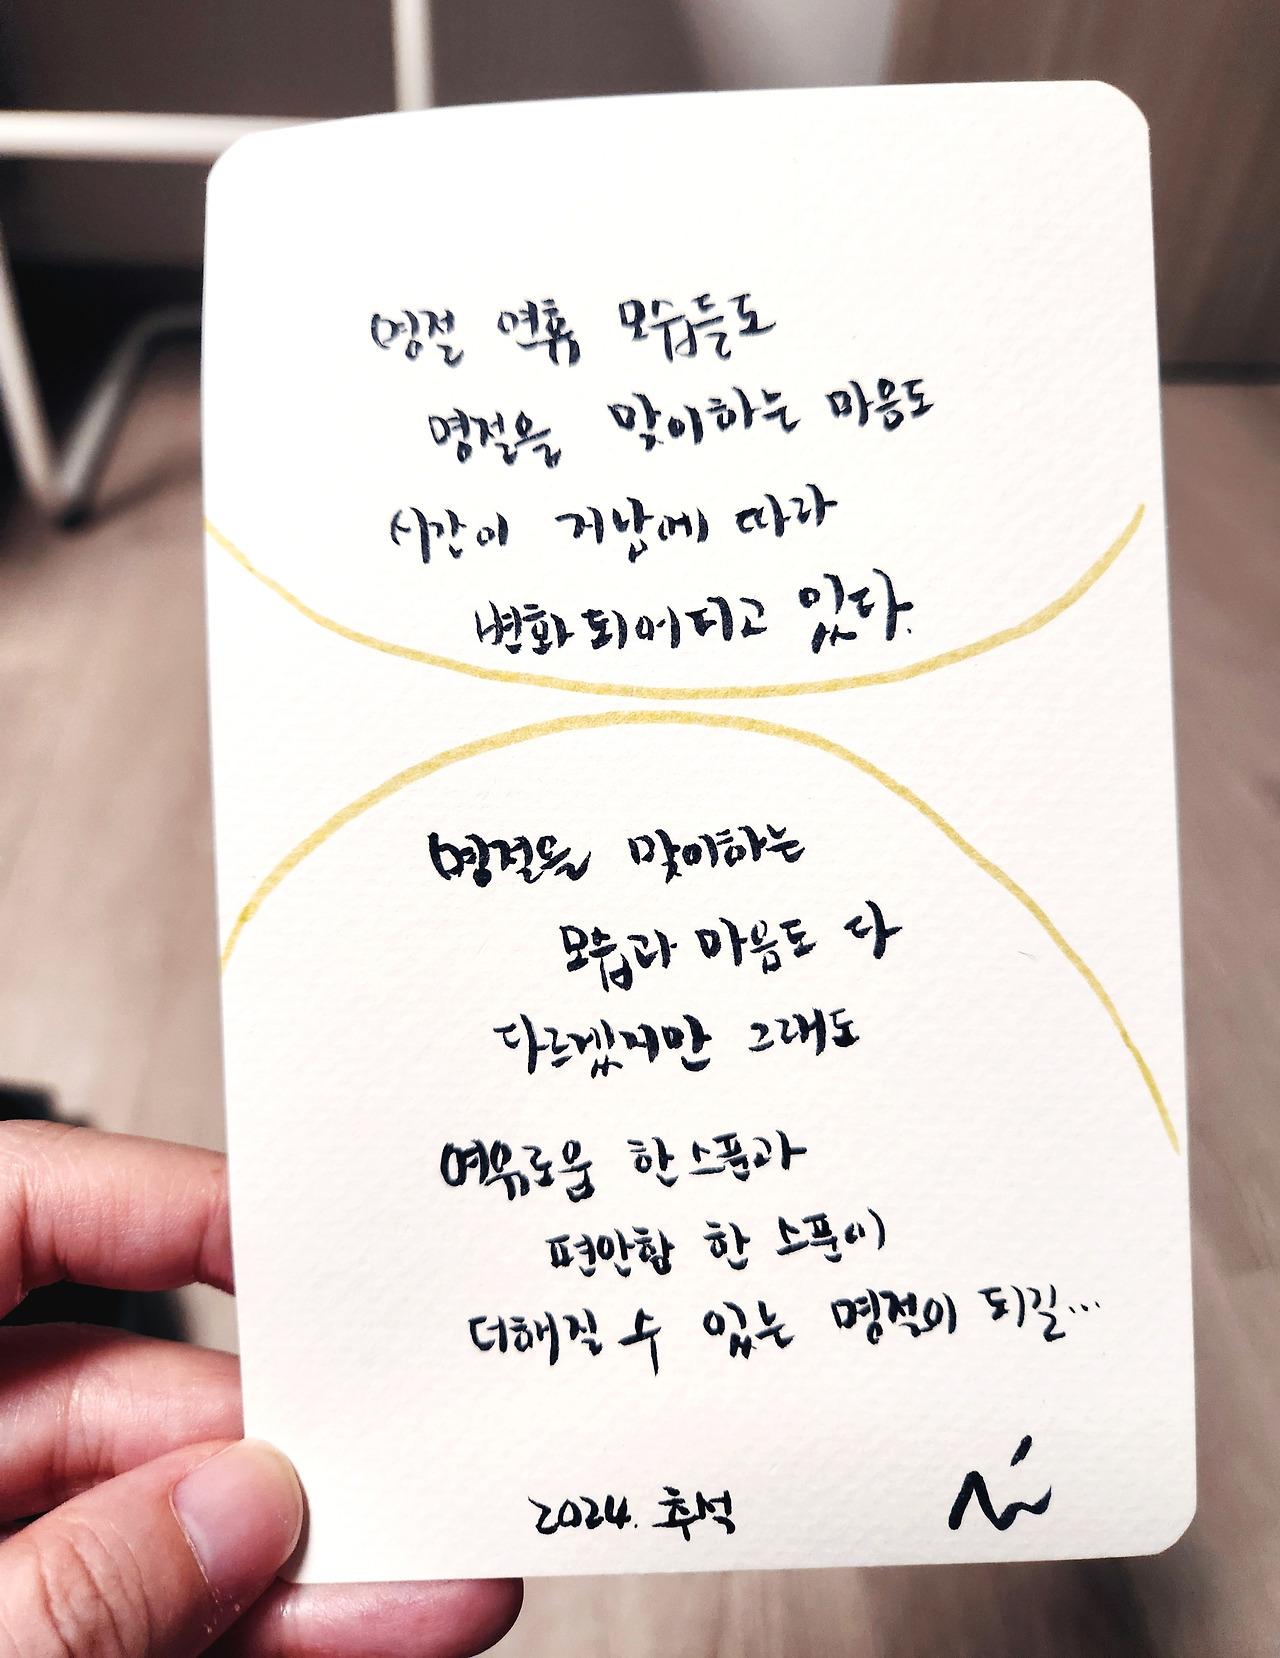 명절 연휴 모습들도
명절을 맞이하는 마음도
시간이 지남에 따라
변화되어지고 있다.
명절을 맞이하는
모습과 마음도 다
다르겠지만 그래도
여유로움 한 스푼과
편안함 한 스푼이
더해질 수 있는 명절이 되길...
2024. 추석